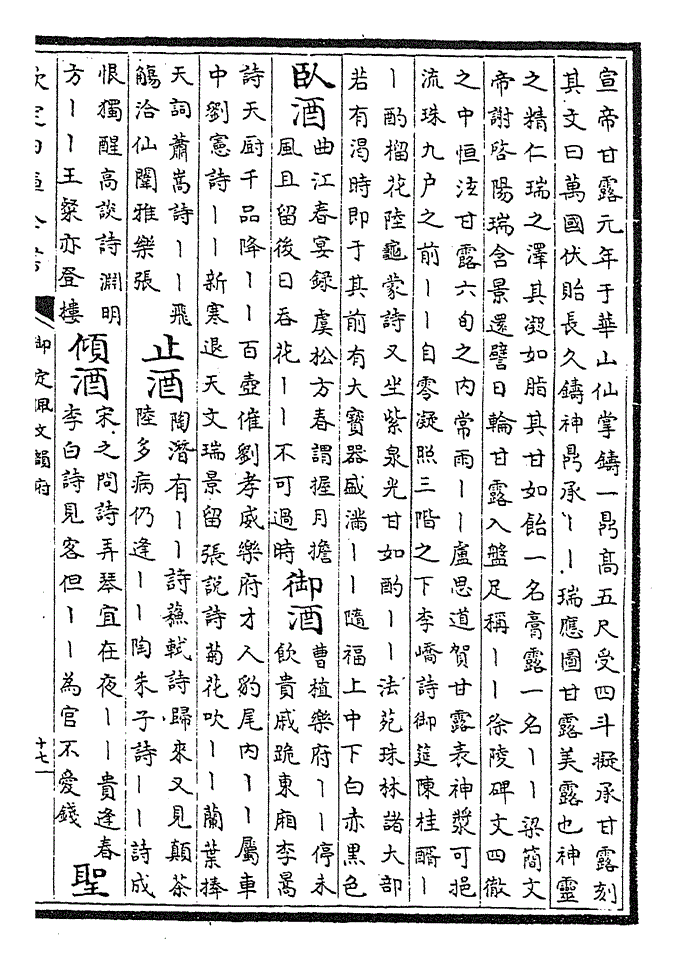 宣帝甘露元年于華山仙掌鑄一鼎高五尺受四斗擬承甘露刻
其文曰萬國伏貽長久鑄神鼎承丨丨瑞應圖甘露美露也神靈
之精仁瑞之澤其凝如脂其甘如飴一名膏露一名丨丨梁簡文
帝謝啓陽瑞含景還譬日輪甘露入盤足稱丨丨徐陵碑文四徹
之中恒泫甘露六旬之内常雨丨丨盧思道賀甘露表神漿可挹
流珠九户之前丨丨自零凝照三階之下李嶠詩御筵陳桂醑丨
丨酌榴花陸龜蒙詩又坐紫泉光甘如酌丨丨法苑珠林諸大部
若有渴時即于其前有大寶器盛滿丨丨隨福上中下白赤黑色
臥酒
曲江春宴録虞松方春謂握月擔
風且留後日吞花丨丨不可過時
御酒
曹植樂府丨丨停未
飲貴戚跪東廂李暠
詩天厨千品降丨丨百壺催劉孝威樂府才人豹尾内丨丨屬車
中劉憲詩丨丨新寒退天文瑞景留張說詩菊花吹丨丨蘭葉捧
天詞蕭嵩詩丨丨飛
觴洽仙闈雅樂張
止酒
陶潛有丨丨詩蘇軾詩歸來又見顛茶
陸多病仍逢丨丨陶朱子詩丨丨詩成
恨獨醒高談詩淵明
方丨丨王粲亦登樓
傾酒
宋之問詩弄琴宜在夜丨丨貴逢春
李白詩見客但丨丨為官不愛錢
聖
欽定四庫全書
御定佩文韻府
十七